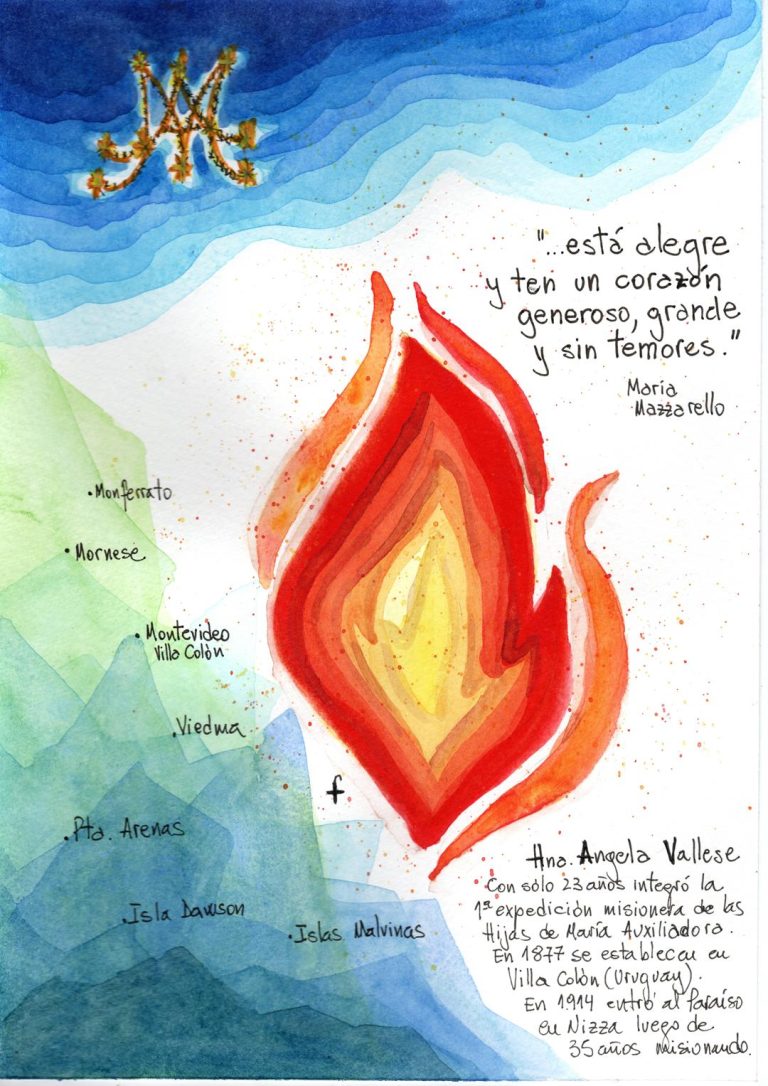 "...está alegre
y ten un corazón
generoso, grande
y sin temores."
María
Mazzarello
Monferrato
Mornese
Montevideo
Villa Colón
Viedma
Pta. Arenas
Isla Dawson
Islas Malvinas
f
Hna. Angela Vallese
Con sólo 23 años integró la
1ª expedición misionera de las
Hijas de María Auxiliadora.
En 1877 se establecen en
Villa Colón (Uruguay).
En 1914 entró al Paraíso
en Nizza luego de
35 años misionando.